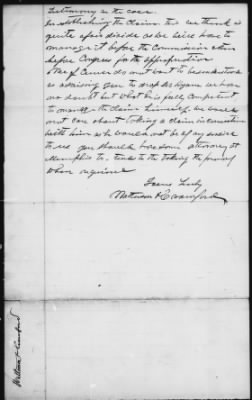 testimony in the case.
In establishing the claim, this we think is
quite a fair divide as we will have to
manage it before the Commission then
before Congress for the appropriation
do not want to be understood
as advising you to as we have
no doubt but what he is fully competent
to manage the claim himself. he would
not care about taking a claim in connection
with him as he would not be of any service
to us you should have some attorney at
Memphis to attend to the taking the proof
when required
Yours Truly
& Crawford
& Crawford